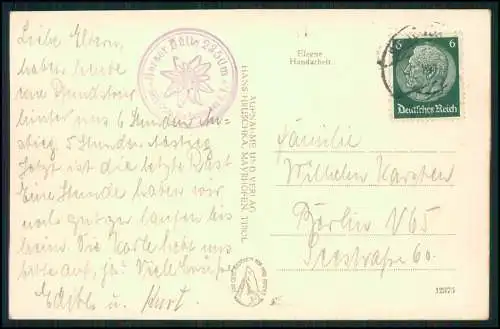 Liebe Eltern,
haben heute
eine Rundtour
hinter uns 6 Stunden An-
stieg 5 Stunden Abstieg
Jetzt ist die letzte Rast
Eine Stunde haben wir
noch zu laufen bis
heim. Die Karte hebt uns
bitte auf, ja? Viele Grüße
u. Kurt.
Hütte 2250m
Eigene
Handarbeit
AUFNAHME UND VERLAG
HANS HRUSCHKA, MAYRHOFEN, TIROL
6 6
Deutsches Reich
Familie
Wilhelm Karsten
Berlin N 65
Seestraße 60.
12375